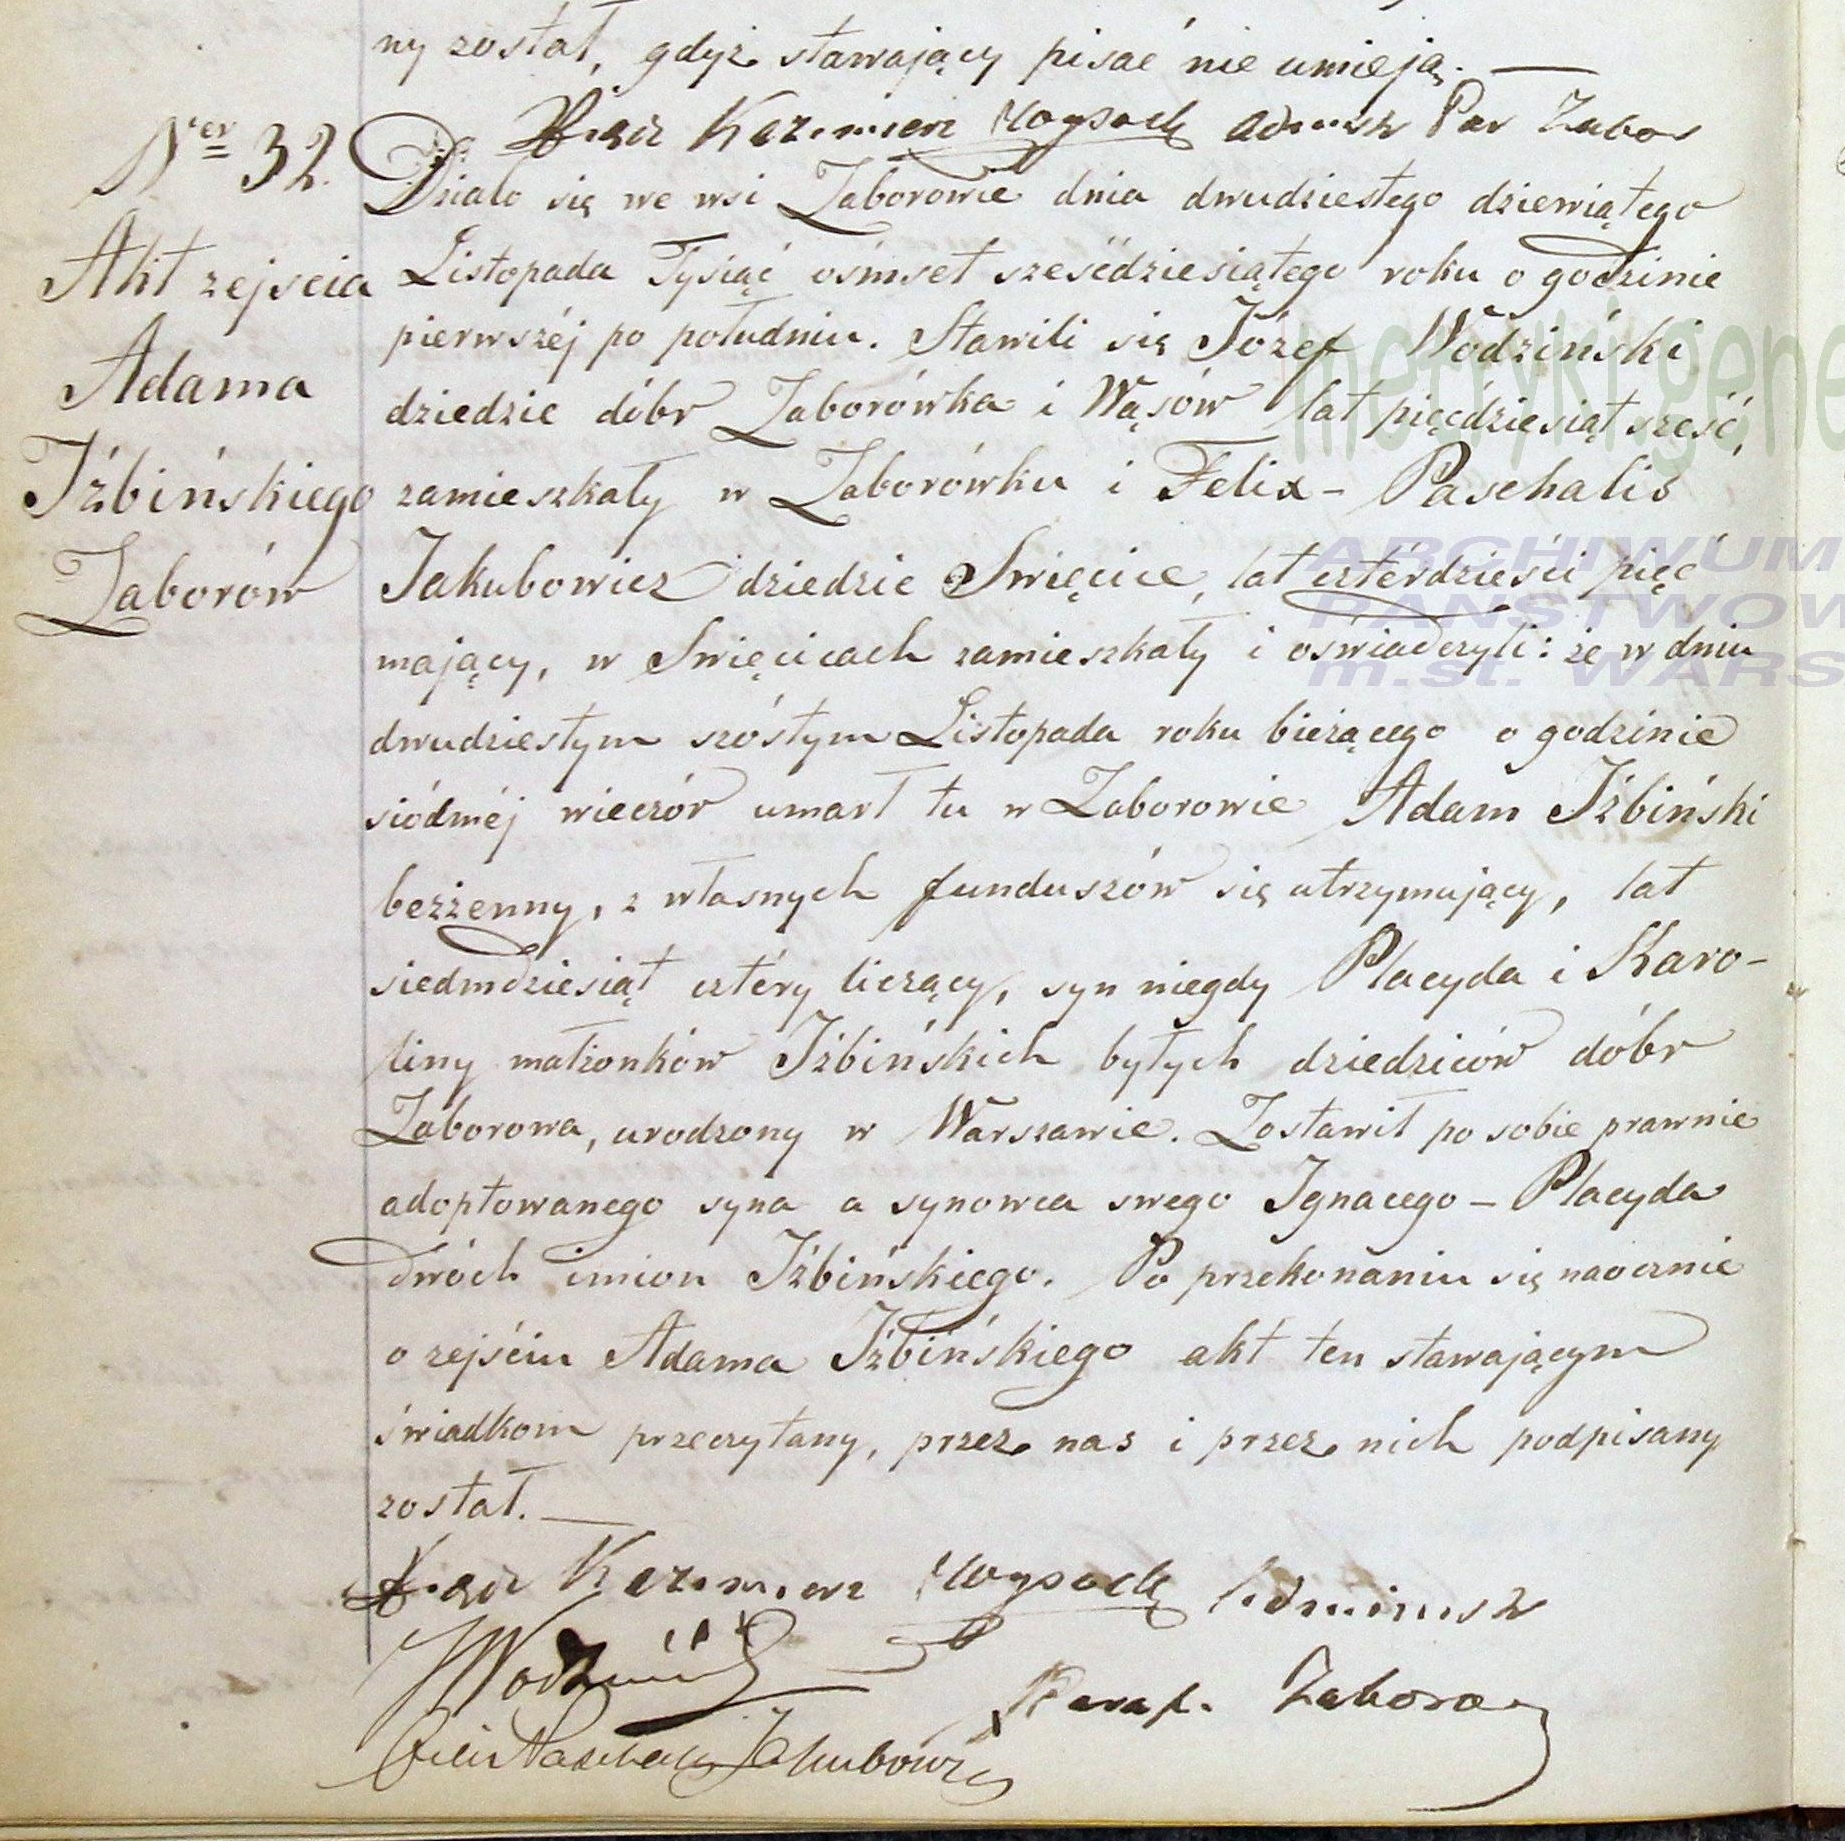 ny został, gdyż stawający pisać nie umieją. —
Xiądz Kazimierz Wysocki Admsr Par Zabor
Ner 32.
Akt zejscia
Adama
Iźbińskiego
Zaborów
Działo się we wsi Zaborowie dnia dwudziestego dziewiątego
Listopada Tysiąć ośmset sześćdziesiątego roku o godzinie
pierwszéj po południu. Stawili się Józef Wodziński
dziedzic dóbr Zaborówka i Wąsów lat pięćdziesiąt sześć,
zamieszkały w Zaborówku i Felix - Paschalis
Jakubowicz dziedzic Swięcic, lat cztérdzieści pięć
mający, w Swięcicach zamieszkały i oświadczyli: że w dniu
dwudziestym szóstym Listopada roku bieżącego o godzinie
siódméj wieczór umarł tu w Zaborowie Adam Iźbiński
bezżenny, z własnych funduszów się utrzymujący, lat
siedmdziesiąt cztéry liczący, syn niegdy Placyda i Karo-
liny małżonków Iźbińskich byłych dziedziców dóbr
Zaborowa, urodzony w Warszawie. Zostawił po sobie prawnie
adoptowanego syna a synowca swego Ignacego - Placyda
dwóch imion Iźbińskiego. Po przekonaniu się naocznie
o zejściu Adama Iźbińskiego akt ten stawającym
świadkom przeczytany, przez nas i przez nich podpisany
został. —
Xiądz Kazimierz Wysocki Adminisr
JWodziński
Paraf. Zaborow
Felix Paschalis Jakubowicz
metryki.gene
ARCHIWUM
PAŃSTWOW
m.st. WARS